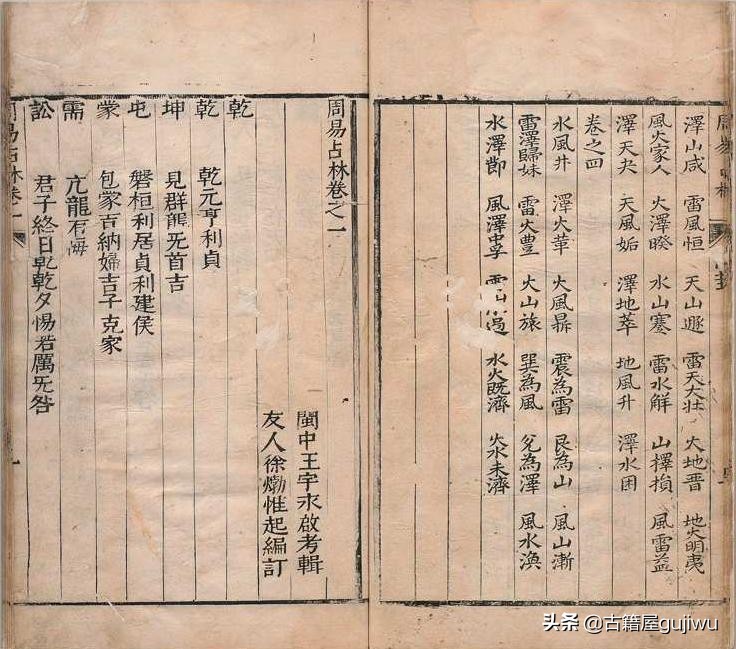 澤山咸 雷風恒 天山遯 雷天大壯 火地晋 地火明夷
風火家人 火澤睽 水山蹇 雷水解 山擇損 風雷益
澤天夬 天風姤 澤地萃 地風升 澤水困
卷之四
水風井 澤火革 火風鼎 震為雷 艮為山 風山漸
雷澤歸妹 雷火豊 火山旅 巽為風 兌為澤 風水渙
水澤節 風澤中孚 水火既濟 火水未濟
周易占林卷之一
閩中王宇永啟考輯
友人徐㶿惟起編訂
乾
乾 乾元亨利貞
坤 見群龍旡首吉
屯 磐桓利居貞利建侯
蒙 包蒙吉納婦吉子克家
需 亢龍有悔
訟 君子終日乹乾夕惕若厲旡咎
周易占林卷一
头条 @古籍屋gujiwu